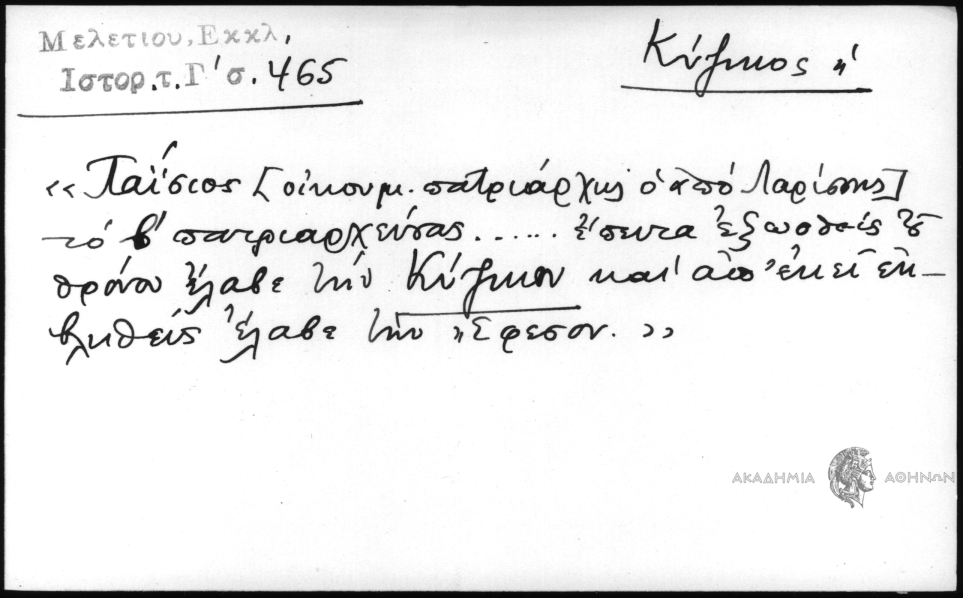 Μελετίου, Εκκλ,
Ιστορ.τ.Γ' σ. 465
Κύζικος ἡ
«Παΐσιος [οἰκουμ. πατριάρχης ὁ ἀπό Λαρίσσης]
τό β' πατριαρχεύσας...... ἔπειτα ἐξωσθείς τοῦ
θρόνου ἔλαβε τήν Κύζικον καί ἀπό ἐκεῖ ἐκ-
βληθείς ἔλαβε τήν Ἔφεσον. »
ΑΚΑΔΗΜΙΑ ΑΘΗΝΩΝ